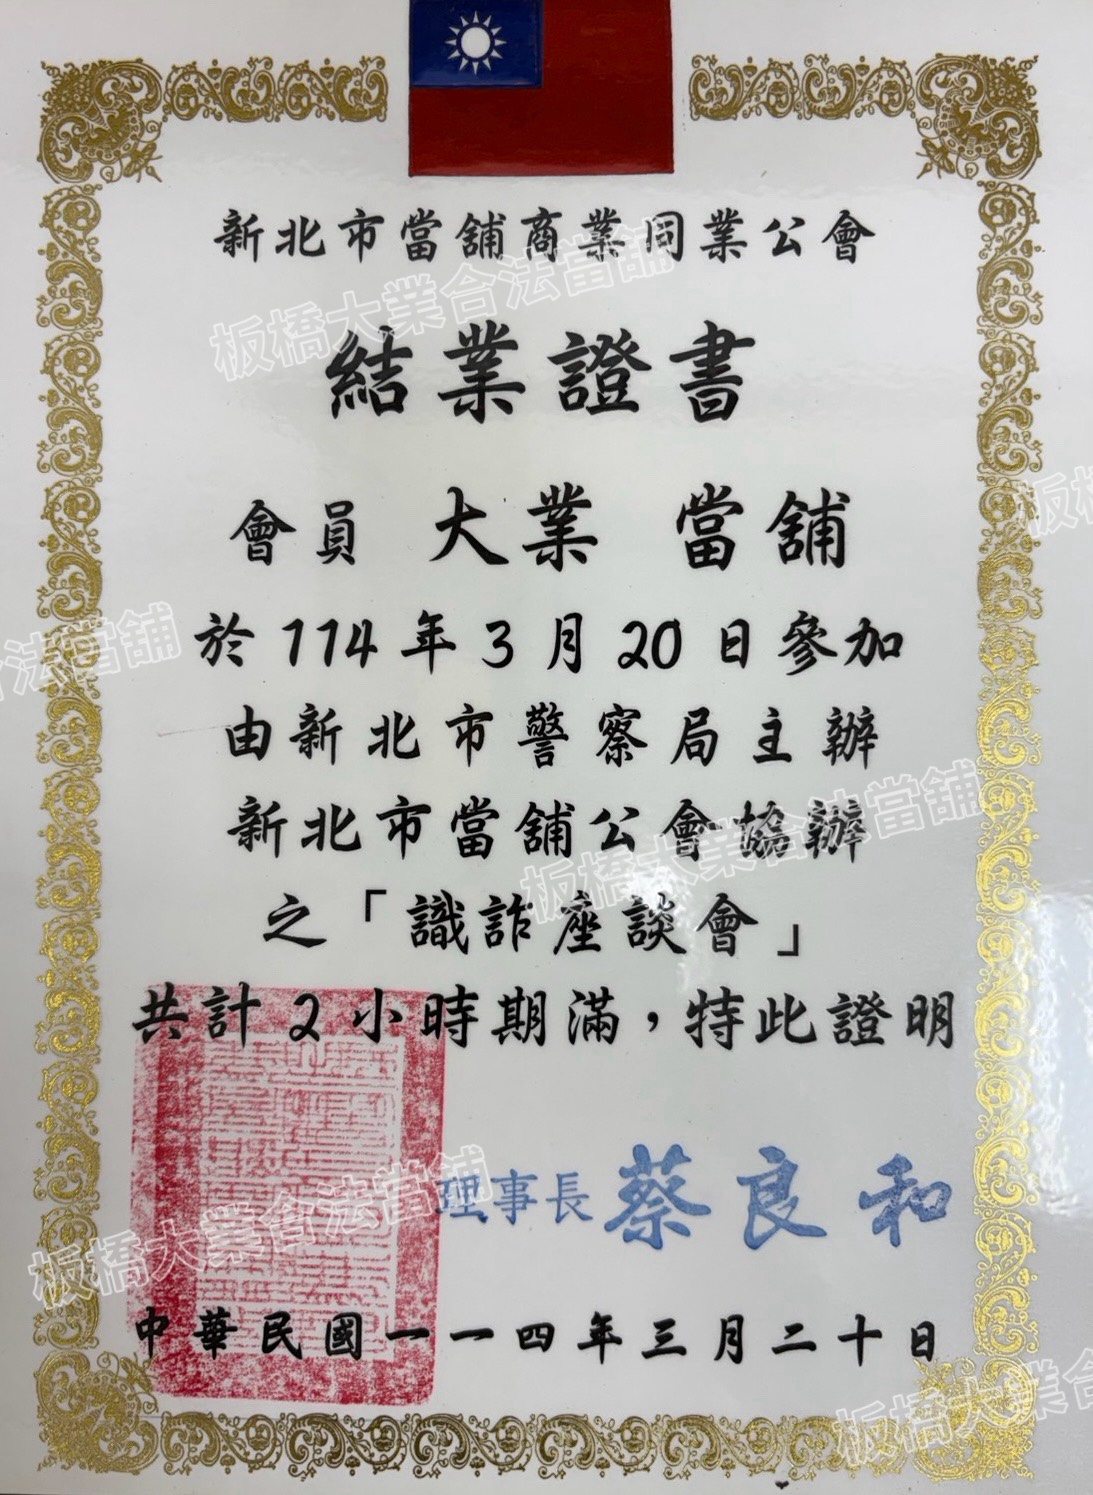 新北市當舖商業同業公會
板橋大業合法當舖
結業證書
會員 大業 當舖
於114年3月20日參加
合法當舖
由新北市警察局主辦
新北市當舖公會協辦
板橋大業合法當舖
之「識詐座談會」
共計2小時期滿，特此證明
理事長 蔡良和
板橋大業合法當舖
中華民國一一四年三月二十日
板橋大業合